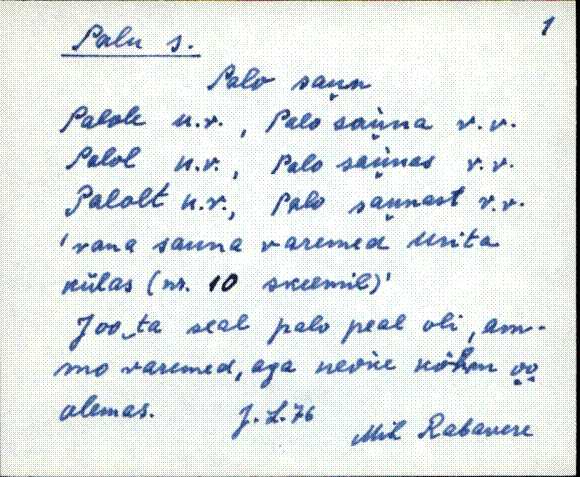 1
Palu s.
Palo saun̬
Palole u.v., Palo sau̬na v.v.
Palol u.v., Palo sau̬nas v.v.
Palolt u.v., Palo sau̬nast v.v.
'vana sauna varemed Urita
külas (nr. 10 skeemil)'
Joo, ta seal palo peal oli, am-
mo varemed, aga keóke kõhm o̬o̬
olemas. J. L. 76
Mik Rabavere